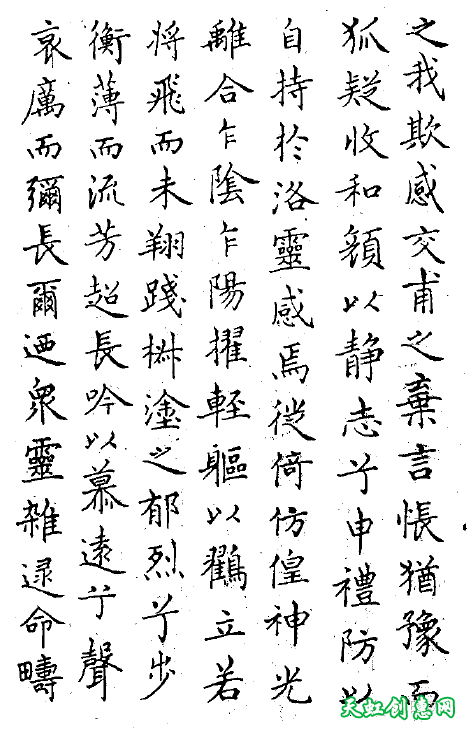 之我欺感交甫之棄言悵猶豫而
狐疑收和顏以静志兮申禮防以
自持於洛靈感焉徙倚仿偟神光
離合乍陰乍陽擢輕軀以鶴立若
将飛而未翔踐椒塗之郁烈兮步
衡薄而流芳超長吟以慕遠兮聲
哀厲而彌長爾迺衆靈雜遝命疇
天虹创意网